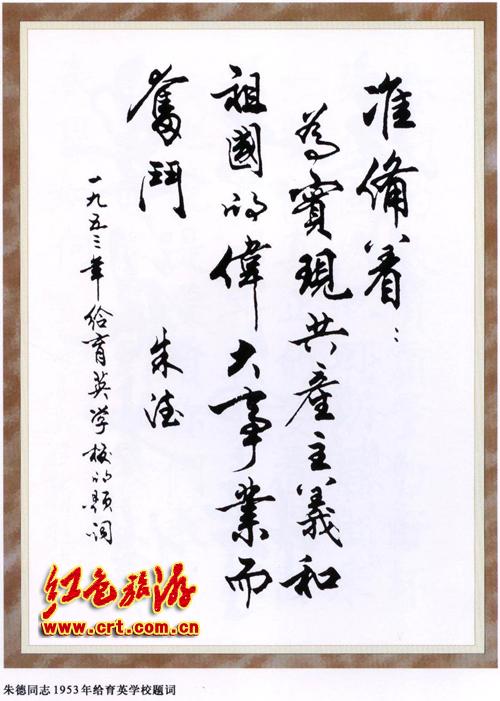 准备着：
為實現共產主義和
祖國的偉大事業而
奮鬥
朱德
一九五三年给育英学校的题词
红色旅游
www.crt.com.cn
朱德同志1953年给育英学校题词